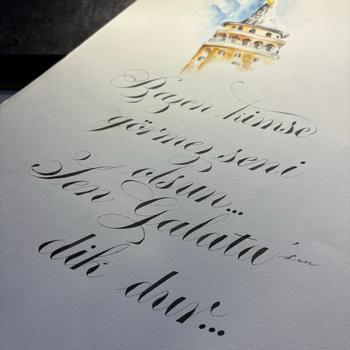 Bazen kimse
görmez seni
olsun...
Sen Galata'sın
dik dur...